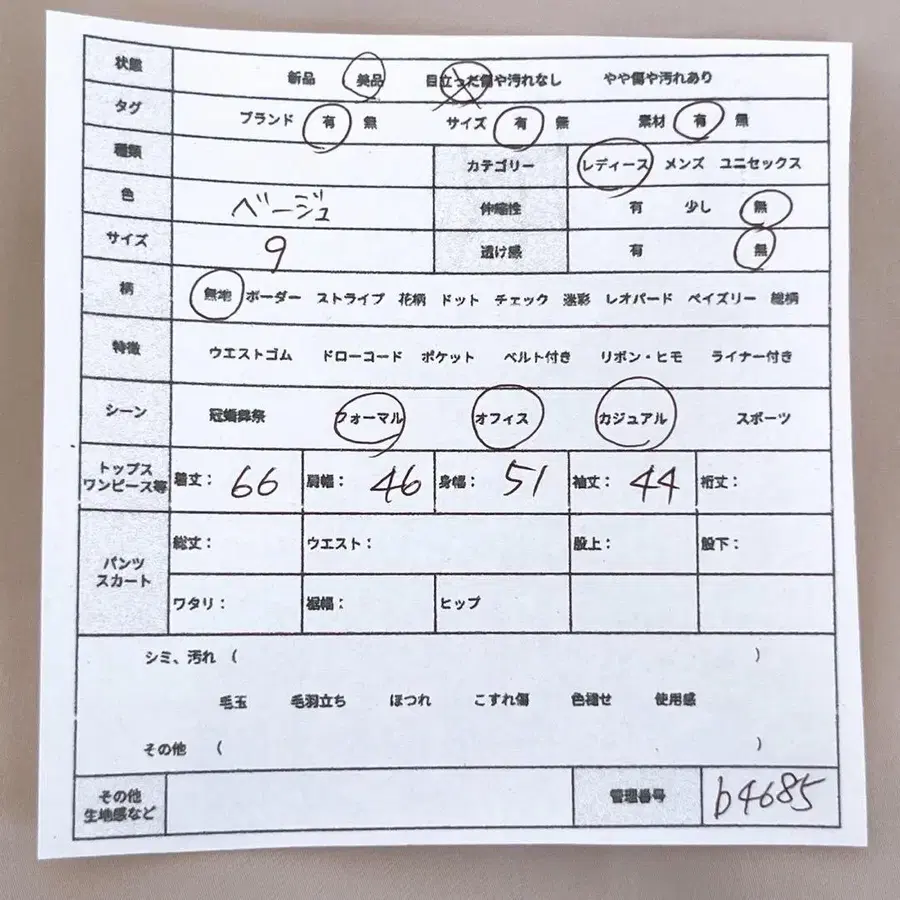 状態 新品 美品 目立った傷や汚れなし やや傷や汚れあり
タグ ブランド 有 無 サイズ 有 無 素材 有 無
種類 カテゴリー レディース メンズ ユニセックス
色 ベージュ 伸縮性 有 少し 無
サイズ 9 透け感 有 無
柄 無地 ボーダー ストライプ 花柄 ドット チェック 迷彩 レオパード ペイズリー 総柄
特徴 ウエストゴム ドローコード ポケット ベルト付き リボン・ヒモ ライナー付き
シーン 冠婚葬祭 フォーマル オフィス カジュアル スポーツ
トップス
ワンピース等 着丈： 66 肩幅： 46 身幅： 51 袖丈： 44 裄丈：
パンツ
スカート 総丈： ウエスト： 股上： 股下：
ワタリ： 裾幅： ヒップ
シミ、汚れ （ ）
毛玉 毛羽立ち ほつれ こすれ傷 色褪せ 使用感
その他 （ ）
その他
生地感など 管理番号 b4685